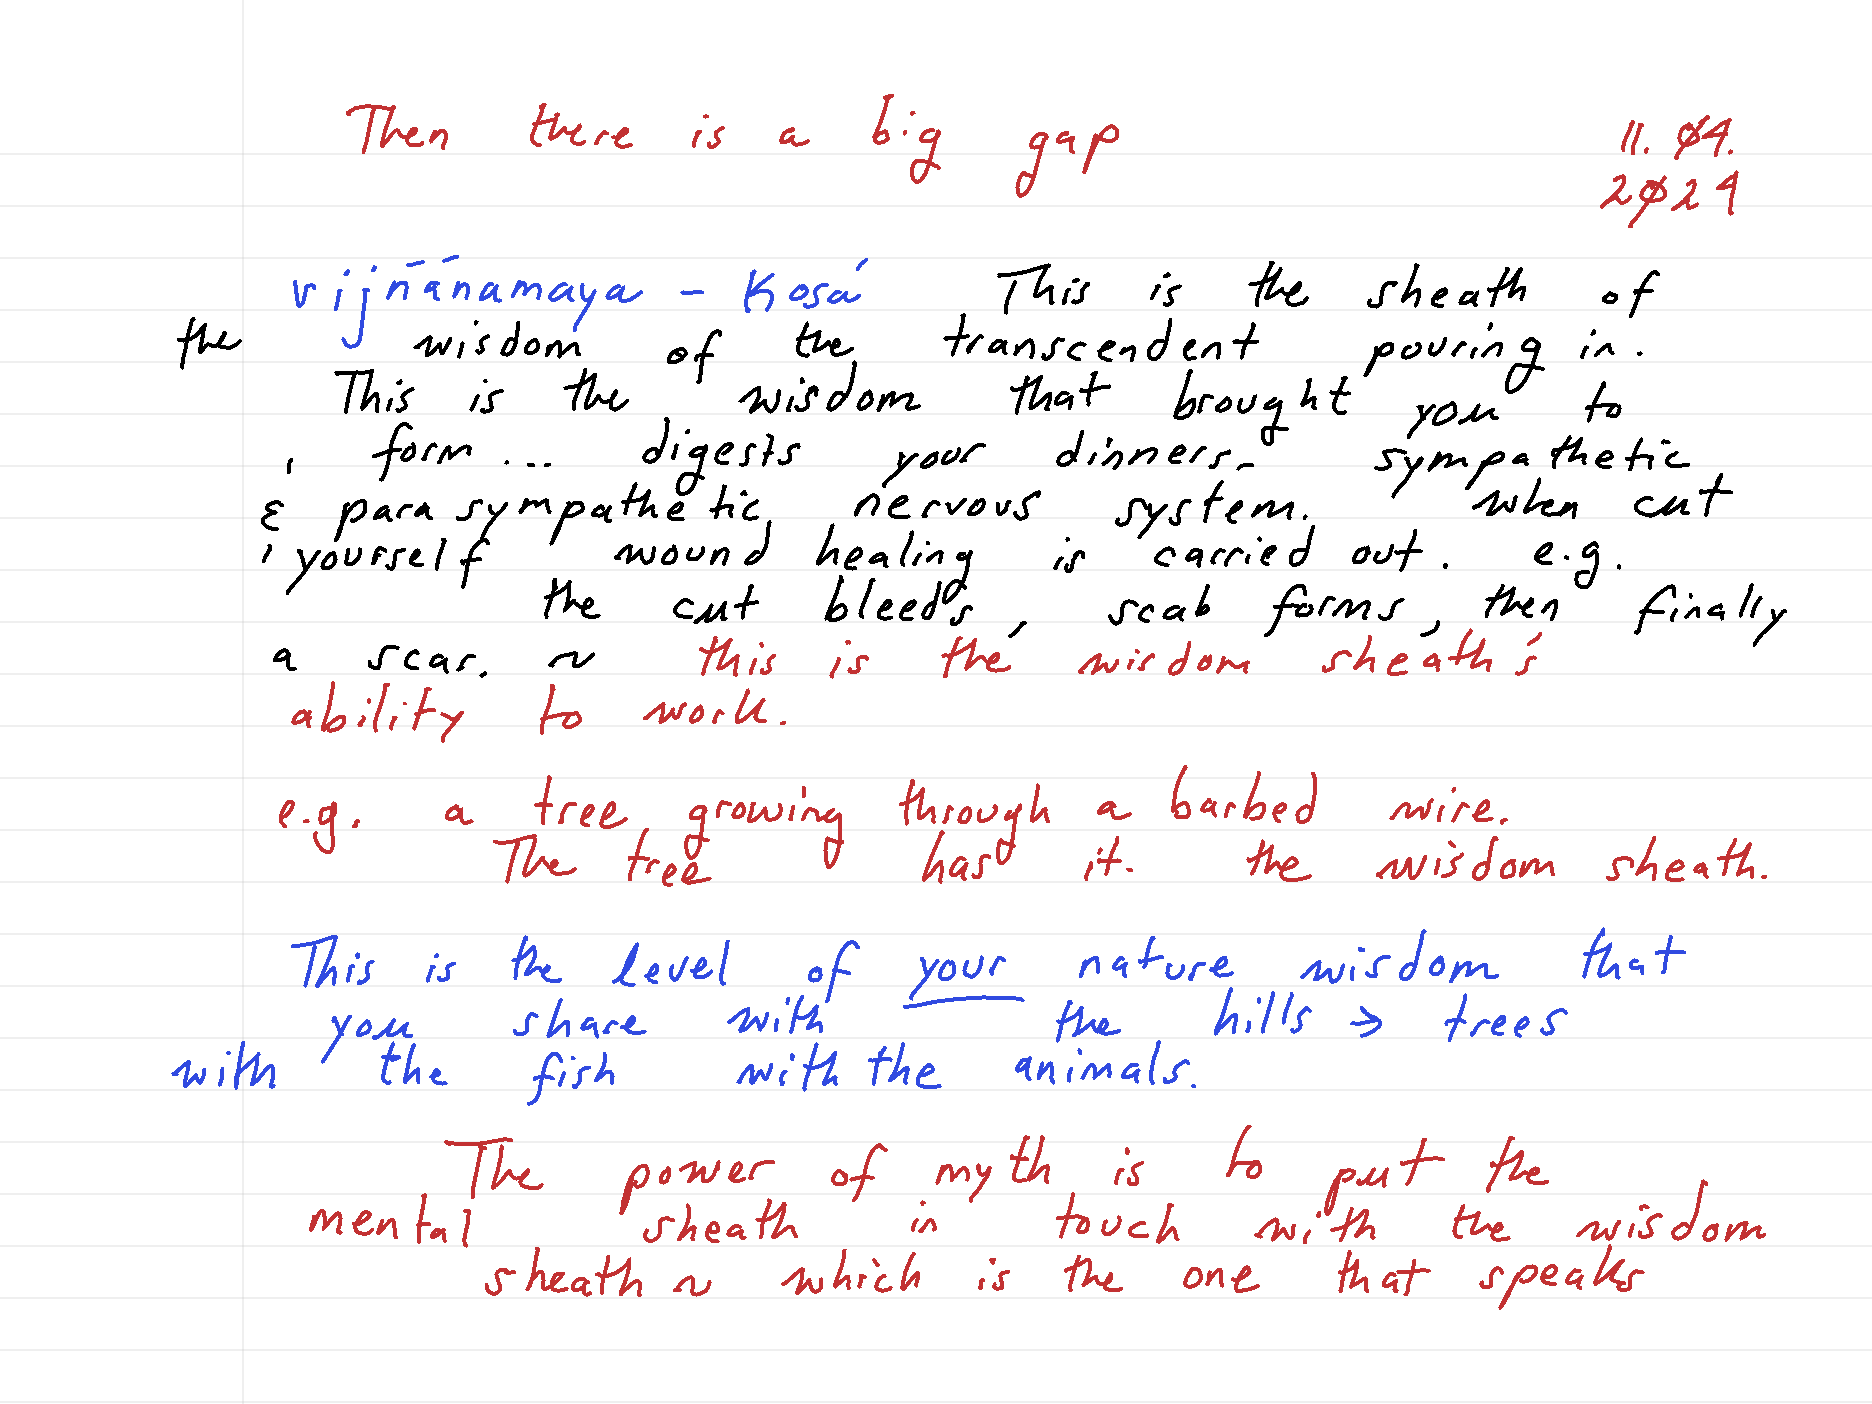 Then there is a big gap
11. Ø4.
2Ø24
vijñānamaya - Kosá This is the sheath of
the wisdom of the transcendent pouring in.
This is the wisdom that brought you to
form ... digests your dinners - sympathetic
& parasympathetic nervous system. when cut
yourself wound healing is carried out. e.g.
the cut bleeds, scab forms, then finally
a scar. ~ this is the wisdom sheath's
ability to work.
e.g. a tree growing through a barbed wire.
The tree has it. the wisdom sheath.
This is the level of your nature wisdom that
you share with the hills → trees
with the fish with the animals.
The power of myth is to put the
mental sheath in touch with the wisdom
sheath ~ which is the one that speaks